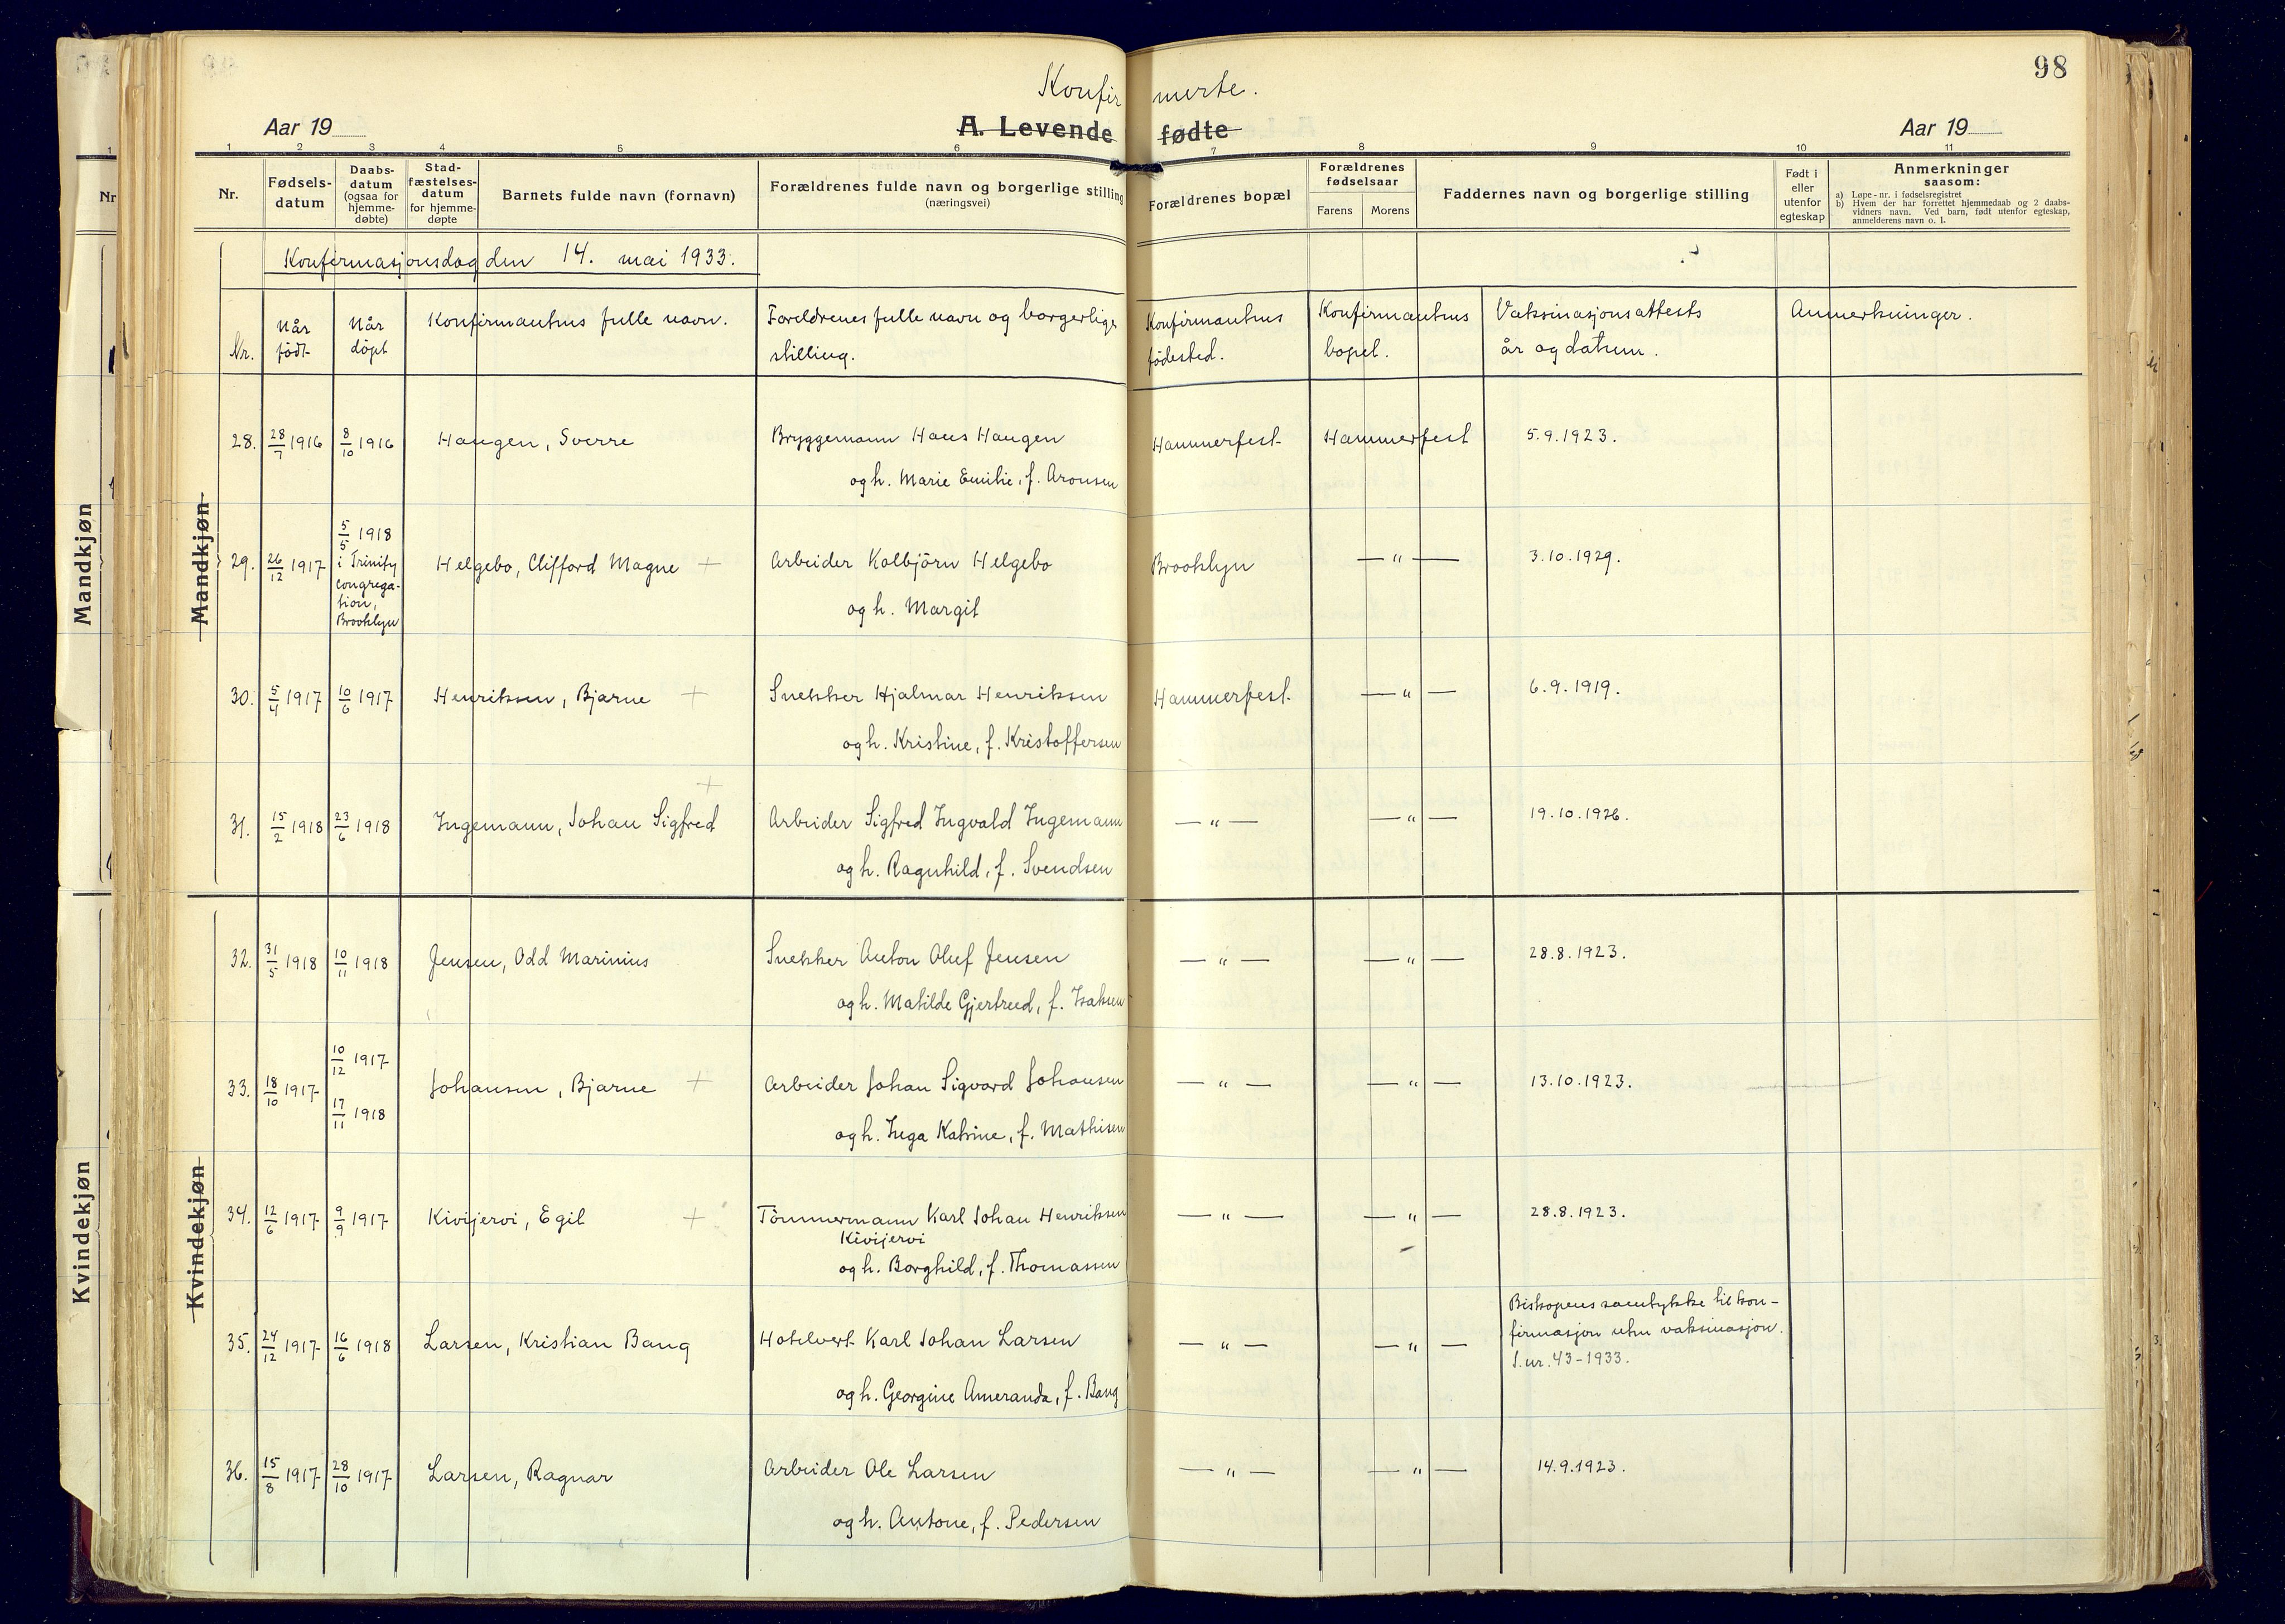 98
Konfirmerte.
Aar 19
A. Levende fødte
Aar 19
1 2 3 4 5 6 7 8 9 10 11
Nr.
Fødsels-
datum
Daabs-
datum
(ogsaa for
hjemme-
døbte)
Stad-
fæstelses-
datum
for hjemme-
døpte
Barnets fulde navn (fornavn)
Forældrenes fulde navn og borgerlige stilling
(næringsvei)
Forældrenes bopæl
Forældrenes
fødselsaar
Farens Morens
Faddernes navn og borgerlige stilling
Født i
eller
utenfor
egteskap
Anmerkninger
saasom:
a) Løpe-nr. i fødselsregistret
b) Hvem der har forrettet hjemmedaab og 2 daabs-
vidners navn. Ved barn, født utenfor egteskap,
anmelderens navn o. l.
Konfirmasjonsdag den 14. mai 1933.
Nr.
Når
født
Når
döpt
Konfirmantens fulle navn.
Foreldrenes fulle navn og borgerlige
stilling.
Konfirmantens
födested.
Konfirmantens
bopel.
Vaksinasjonsattests
år og datum.
Anmerkninger.
Mandkjøn
Mandkjøn
28. 28/7 1916 8/10 1916 Haugen, Sverre Bryggemann Hans Haugen Hammerfest Hammerfest 5.9.1923.
og h. Marie Emilie, f. Aronsen
29. 26/12 1917 5/5 1918
i Trinity
congrega-
tion,
Brooklyn
Helgebo, Clifford Magne + Arbeider Kolbjörn Helgebo Brooklyn — " — 3.10.1929.
og h. Margit
30. 5/4 1917 10/6 1917 Henriksen, Bjarne + Snekker Hjalmar Henriksen Hammerfest. — " — 6.9.1919.
og h. Kristine, f. Kristoffersen
+
31. 15/2 1918 23/6 1918 Ingemann, Johan Sigfred Arbeider Sigfred Ingvald Ingemann — " — — " — 19.10.1926.
og h. Ragnhild, f. Svendsen
Kvindekjøn
Kvindekjøn
32. 31/5 1918 10/11 1918 Jensen, Odd Marinius Snekker Anton Oluf Jensen — " — — " — 28.8.1923.
og h. Matilde Gjertrud, f. Isaksen
33. 18/10 1917 10/12 1917
17/11 1918
Johansen, Bjarne + Arbeider Johan Sigvard Johansen — " — — " — 13.10.1923.
og h. Inga Katrine, f. Mathisen
34. 12/6 1917 9/9 1917 Kivijervi, Egil + Tömmermann Karl Johan Henriksen — " — — " — 28.8.1923.
Kivijervi
og h. Borghild, f. Thomassen
35. 24/12 1917 16/6 1918 Larsen, Kristian Bang Hotelvert Karl Johan Larsen — " — — " —
og h. Georgine Ameranda, f. Bang
Biskopens samtykke til kon-
firmasjon uten vaksinasjon.
J. nr. 43-1933.
36. 15/8 1917 28/10 1917 Larsen, Ragnar Arbeider Ole Larsen — " — — " — 14.9.1923.
og h. Antone, f. Pedersen